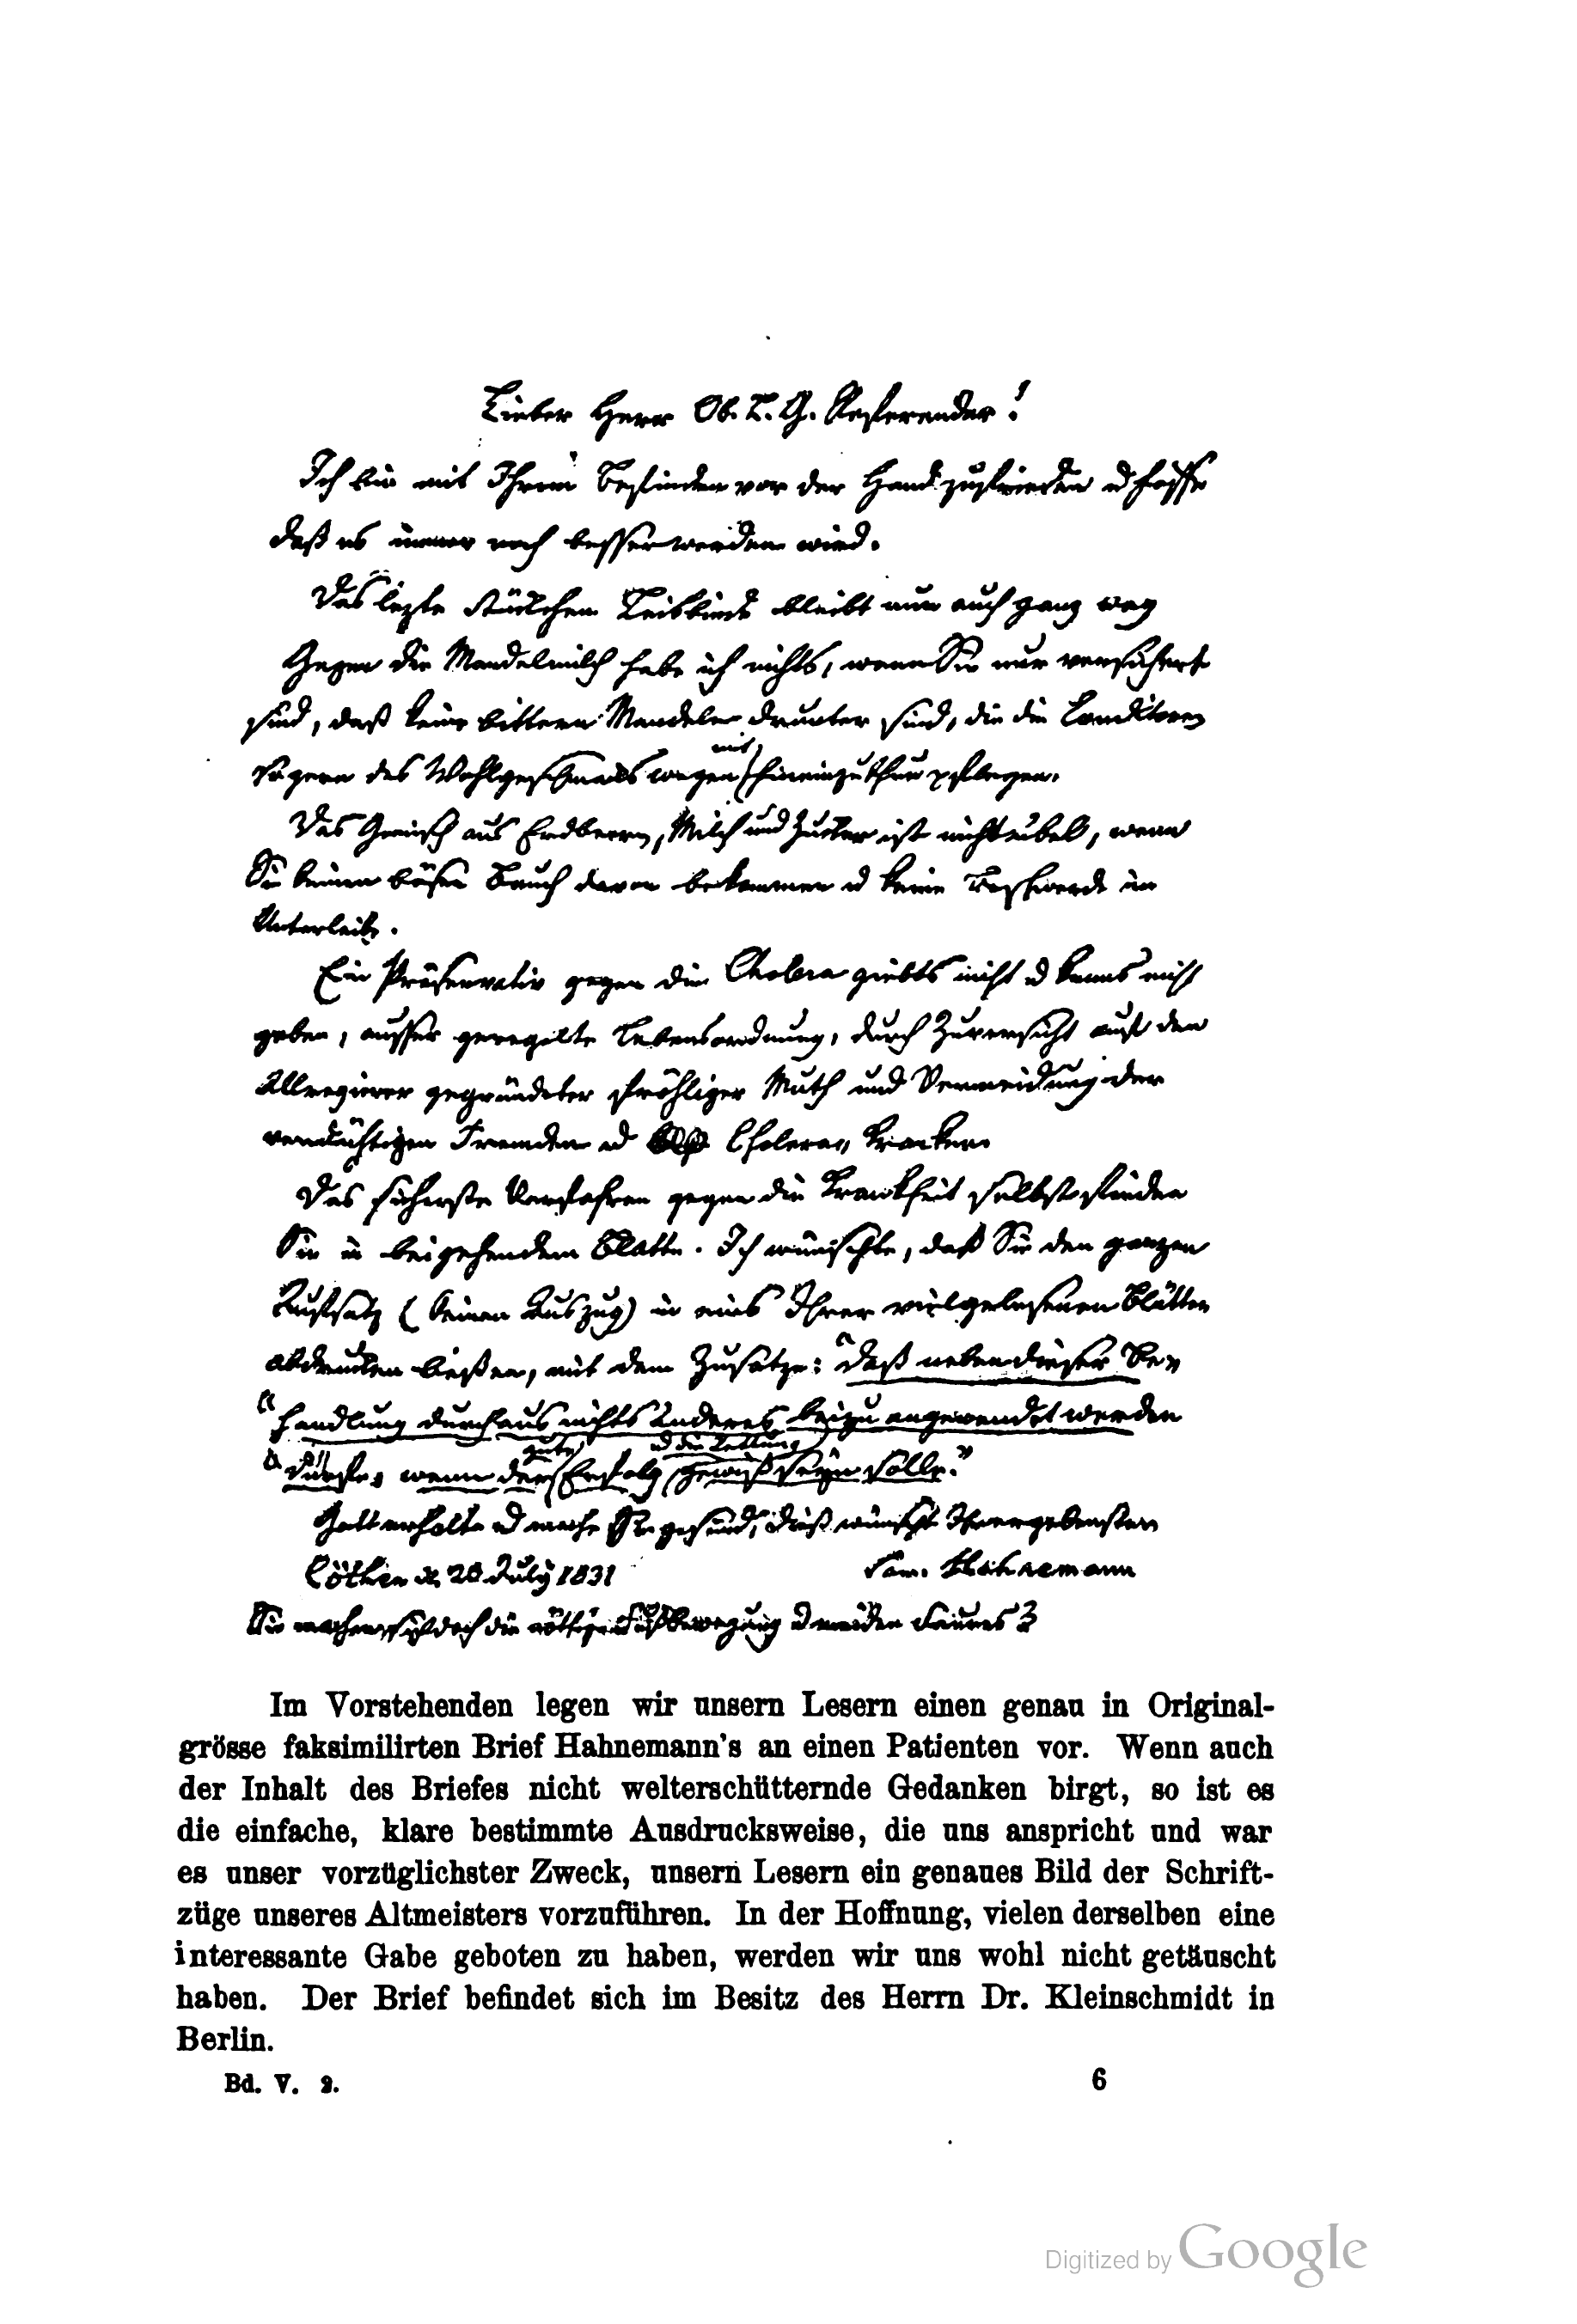 Lieber Herr Ob. L. G. Referendar!
Ich bin mit Ihrem Befinden vor der Hand zufrieden u hoffe
daß es immer noch besser werden wird.
Das lezte Stückchen Leibbinde bleibt nun auch ganz weg
Gegen die Mandelmilch habe ich nichts, wenn Sie nur versichert
sind, daß keine bittern Mandeln drunter sind, die die Conditoren
so gern des Wohlgeschmacks wegen mit hineinzuthun pflegen.
Das Gemisch aus Erdbeeren, Milch und Zucker ist nicht übel, wenn
Sie keinen bösen Bauch davon bekommen u keine Beschwerde im
Unterleibe.
Ein Präservativ gegen die Cholera giebts nicht u kanns nicht
geben, ausser geregelte Lebensordnung, durch Zuversicht auf den
Allregierer gegründeter fröhliger Muth und Vermeidung der
verdächtigen Fremden u Cholera-Kranken.
Das sicherste Verfahren gegen die Krankheit selbst finden
Sie in beigehendem Blatte. Ich wünschte, daß Sie den ganzen
Aufsatz (keinen Auszug) in eins Ihrer vielgelesenen Blätter
abdrucken ließen, mit dem Zusatze: "daß neben dieser Be-
"handlung durchaus nichts Anderes beizu angewendet werden
"dürfte, wenn der gute Erfolg u die Rettung gewiß seyn solle."
Gott erhalte u mache Sie gesund, dieß wünscht Ihr ergebenster
Cöthen d. 20 July 1831 Sam. Hahnemann
Sie machen sich doch die nöthige Fußbewegung u meiden Saures?
Im Vorstehenden legen wir unsern Lesern einen genau in Original-
grösse faksimilirten Brief Hahnemann's an einen Patienten vor. Wenn auch
der Inhalt des Briefes nicht welterschütternde Gedanken birgt, so ist es
die einfache, klare bestimmte Ausdrucksweise, die uns anspricht und war
es unser vorzüglichster Zweck, unsern Lesern ein genaues Bild der Schrift-
züge unseres Altmeisters vorzuführen. In der Hoffnung, vielen derselben eine
interessante Gabe geboten zu haben, werden wir uns wohl nicht getäuscht
haben. Der Brief befindet sich im Besitz des Herrn Dr. Kleinschmidt in
Berlin.
Bd. V. 2. 6
Digitized by Google